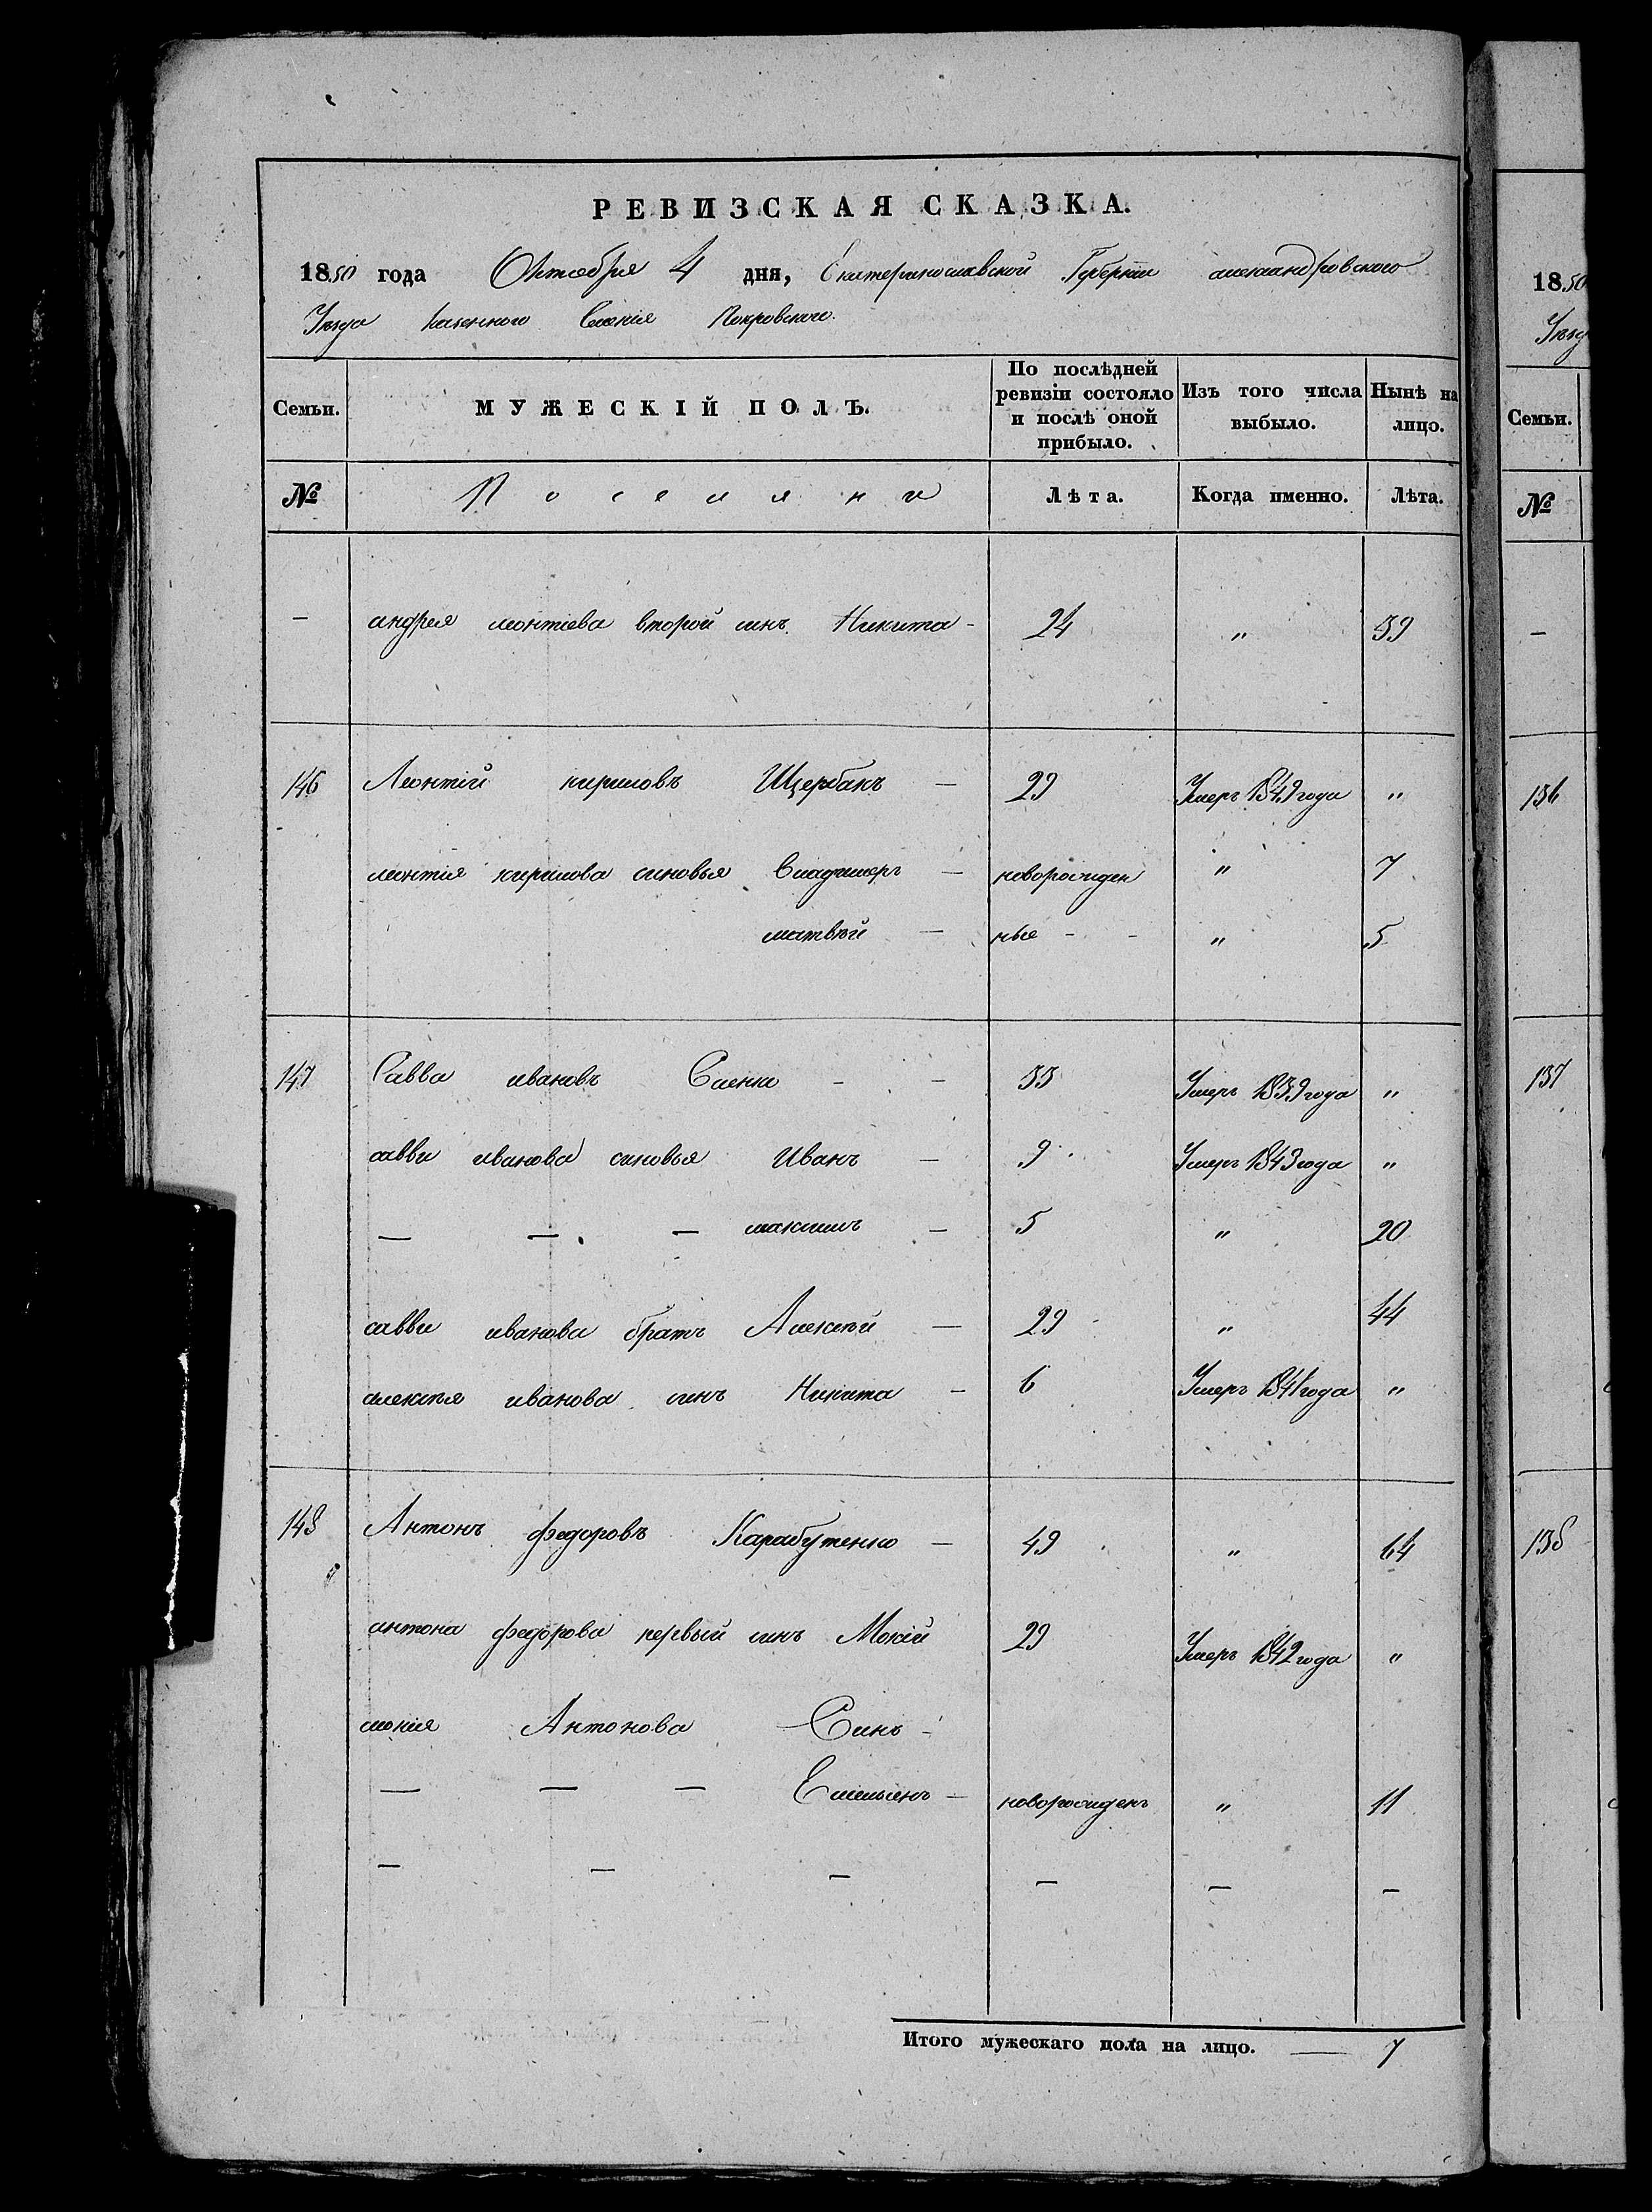 РЕВИЗСКАЯ СКАЗКА.
1850 года Октября 4 дня, Екатеринославской Губерніи александровского
Уезда казенного Селенія Покровского.
Семьи. МУЖЕСКІЙ ПОЛЪ. По послѣдней ревизіи состояло и послѣ оной прибыло. Изъ того числа выбыло. Нынѣ на лицо.
№ Поселяни Лѣта. Когда именно. Лѣта.
— андрея леонтіева второй синъ Никита - 24 " 39
146 Леонтій кириловъ Щербакъ — 29 Умеръ 1849 года "
леонтія кирилова синовья Владимеръ — новорожден " 7
матвѣй — ные - - " 5
147 Савва ивановъ Саенко - - 33 Умеръ 1839 года "
савви иванова синовья Иванъ — 9 Умеръ 1843 года "
— — — максимъ — 5 " 20
савви иванова братъ Алексѣй — 29 " 44
алексѣя иванова синъ Никита — 6 Умеръ 1841 года "
148 Антонъ федоровъ Карабутенко — 49 " 64
антона федорова первый синъ Мокій 29 Умеръ 1842 года "
мокія Антонова Синъ -
— — — Емельянъ — новорожденъ " 11
— — — — — —
Итого мужескаго пола на лицо. — 7
1850
Уезд
Семьи.
№
—
136
137
138